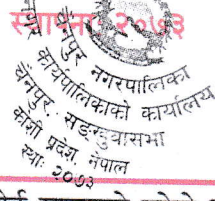 स्थापना २०७३
चैनपुर नगरपालिका
नगर कार्यपालिकाको कार्यालय
चैनपुर, सङ्खुवासभा
कोशी प्रदेश, नेपाल
स्था: २०७३